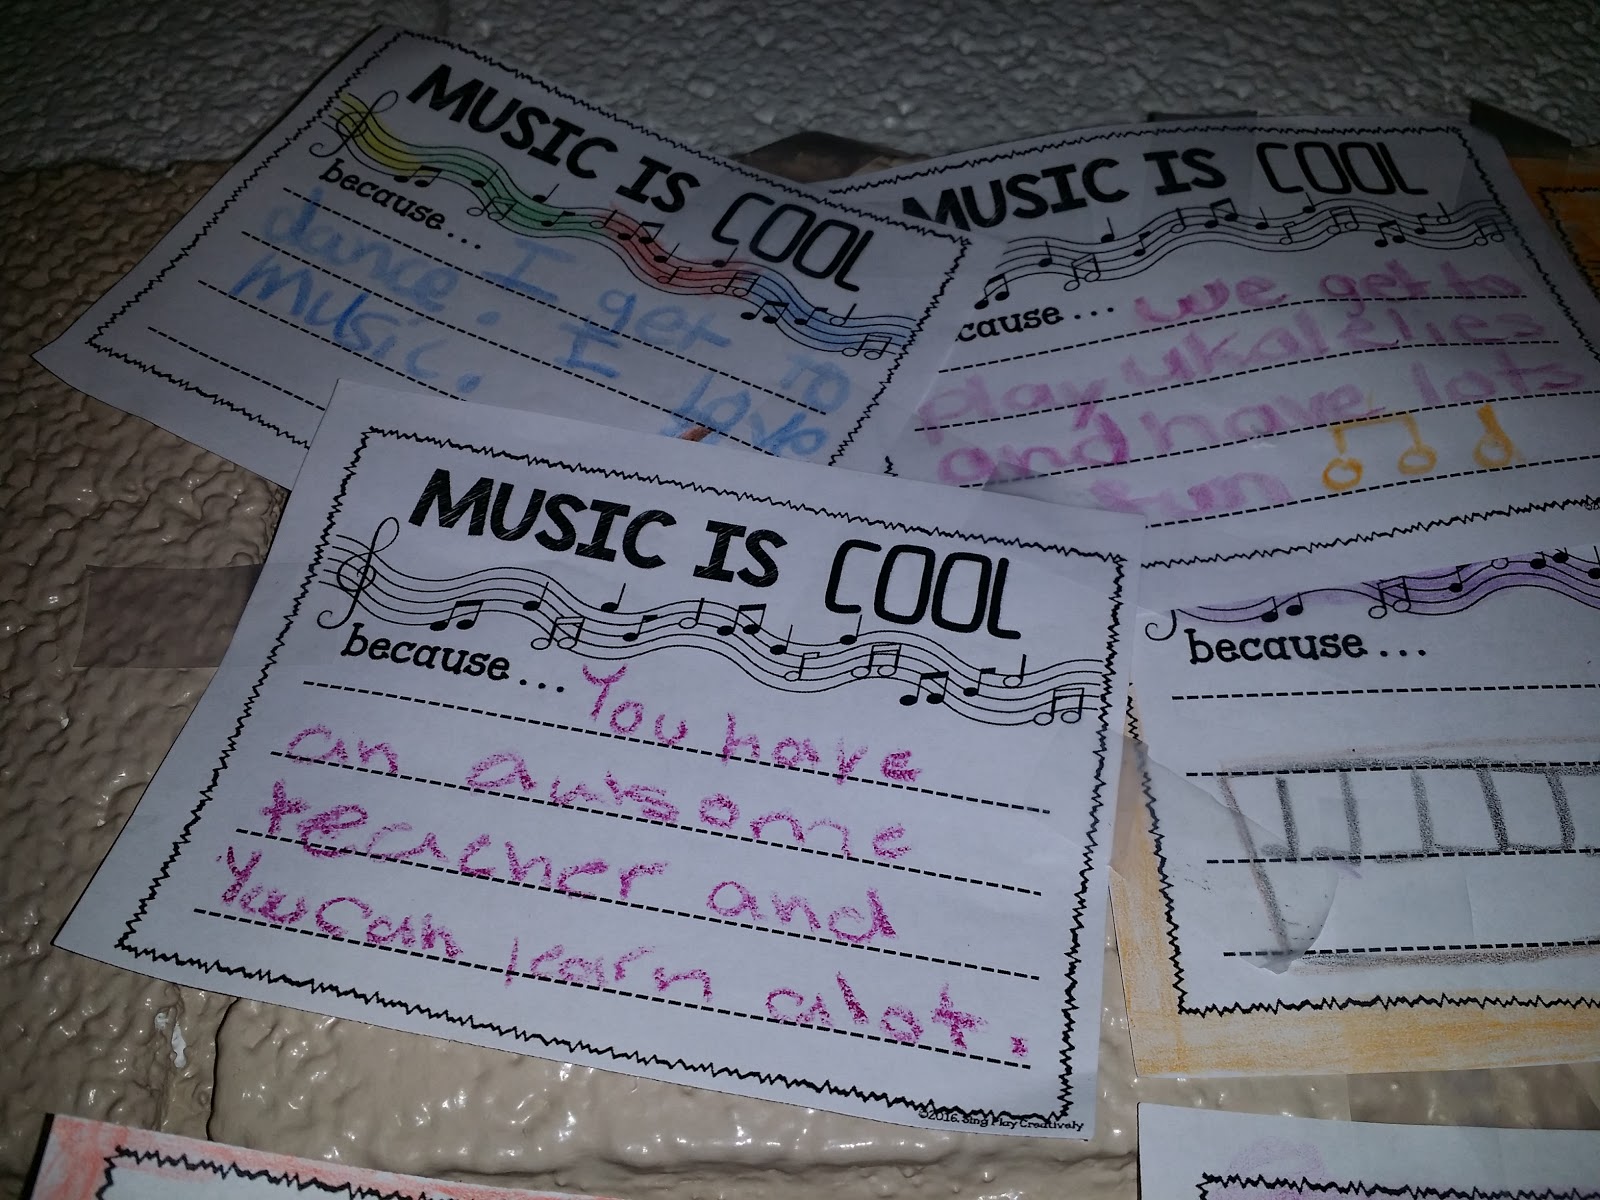 MUSIC IS COOL
because... I get to
dance. I love
music.
MUSIC IS COOL
cause... we get to
play ukalelies
and have lots
fun
MUSIC IS COOL
because... You have
an awsome
teacher and
You can learn alot.
©2016, Sing Play Creatively
because...